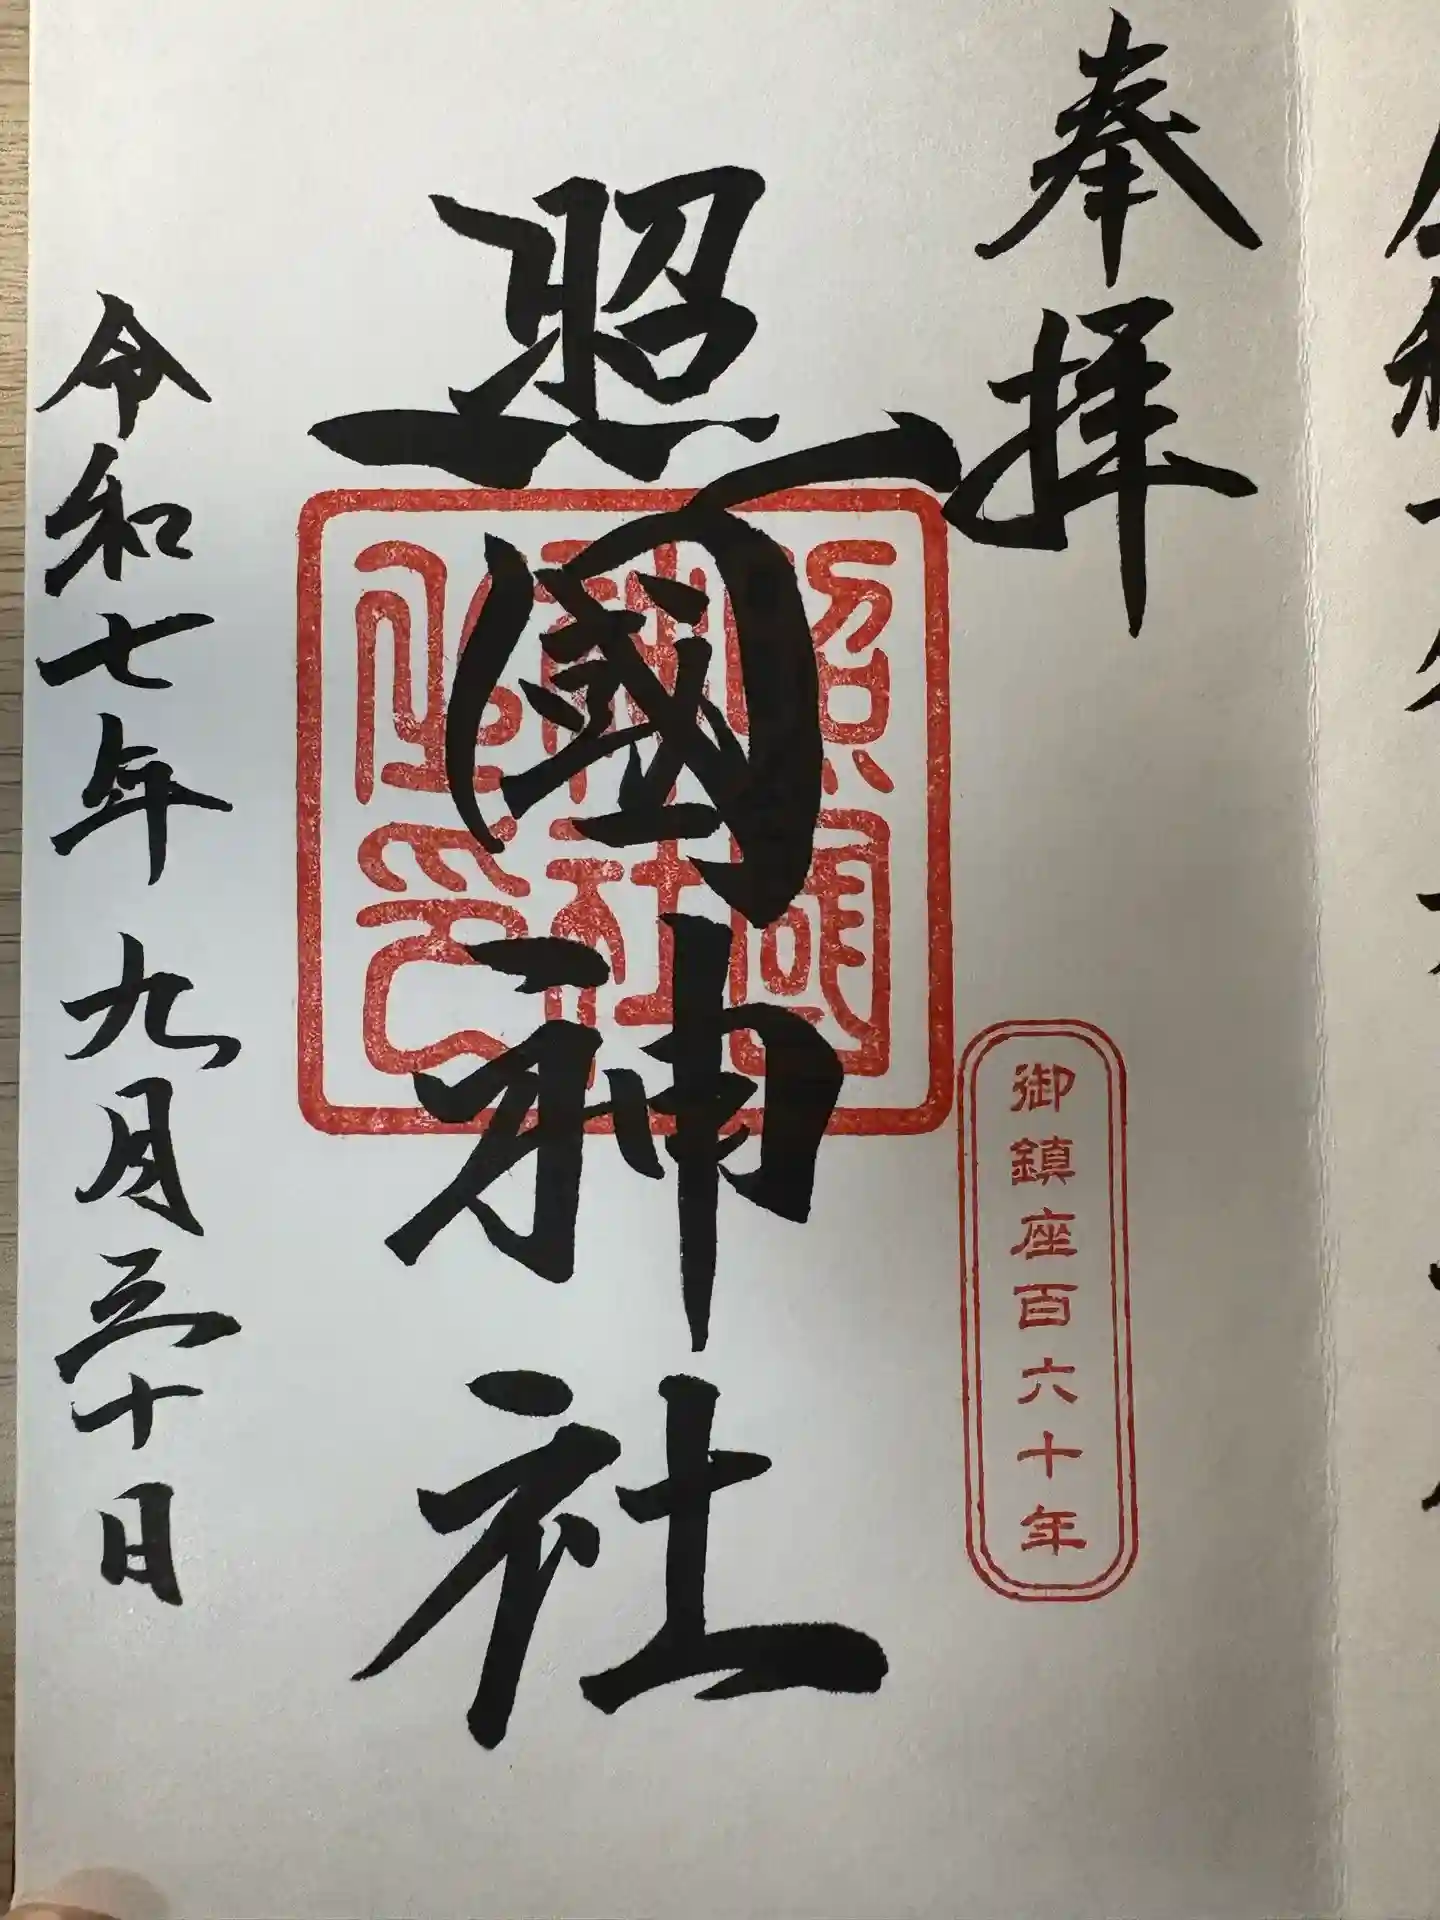 奉拝
御鎮座百六十年
照國神社
照國
神社
之印
令和七年九月三十日